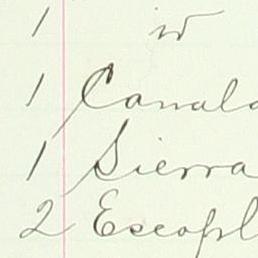 1 id
1 Canala
1 Sierra
2 Escopl